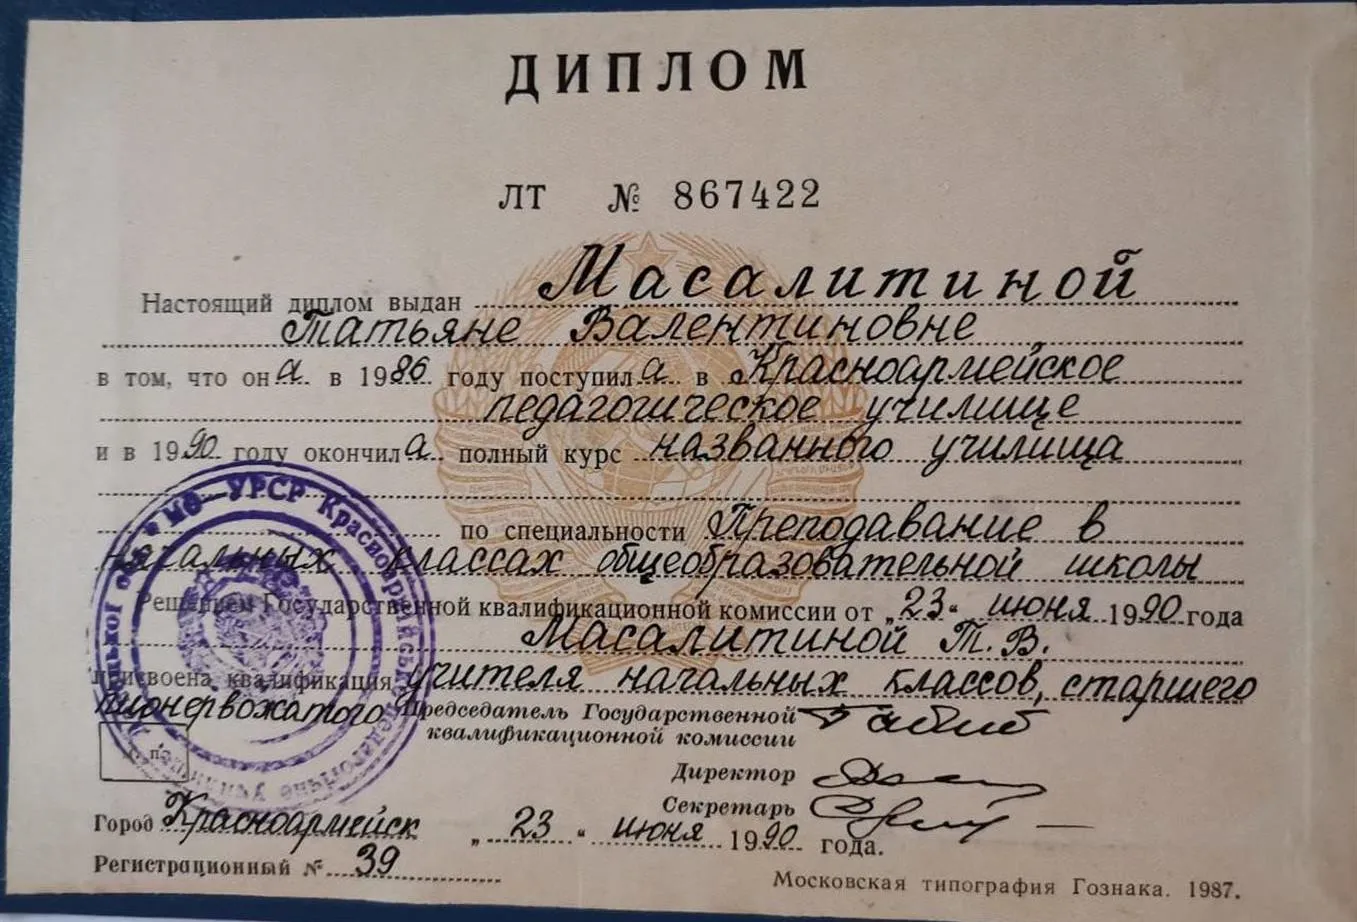 ДИПЛОМ
ЛТ № 867422
Настоящий диплом выдан Масалитиной
Татьяне Валентиновне
в том, что она в 1986 году поступила в Красноармейское
педагогическое училище
и в 1990 году окончила полный курс названного училища
по специальности Преподавание в
начальных классах общеобразовательной школы
Решением Государственной квалификационной комиссии от „23“ июня 1990 года
Масалитиной Т.В.
присвоена квалификация учителя начальных классов, старшего
пионервожатого
Председатель Государственной
квалификационной комиссии
Директор
Секретарь
МО УРСР Красноармійське
Город Красноармейск „23“ июня 1990 года.
Регистрационный № 39
Московская типография Гознака. 1987.